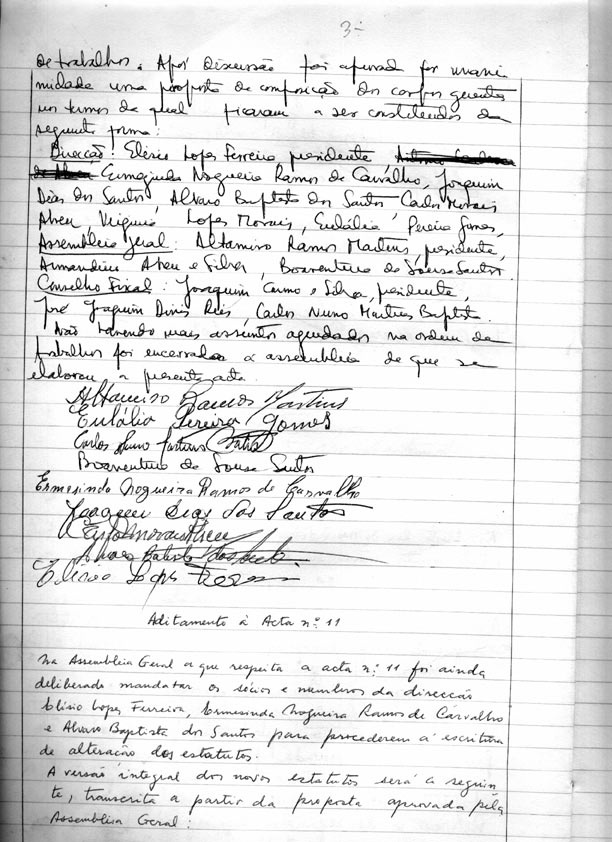 3-
de trabalhos. Após discussão foi aprovada por unani
midade uma proposta de composição dos corpos gerentes
nos termos da qual ficaram a ser constituídos da
seguinte forma:
Direcção: Elísio Lopes Ferreira presidente,
Ermezinda Nogueira Ramos de Carvalho, Joaquim
Dias dos Santos, Alvaro Baptista dos Santos Carlos Morais
Abreu, Virginia Lopes Morais, Eulália Pereira Gomes,
Assembleia Geral: Altamiro Ramos Martins, presidente,
Armandino Abreu e Silva, Boaventura de Sousa Santos
Conselho Fiscal: Joaquim Carmo e Silva, presidente,
José Joaquim Dinis Reis, Carlos Nuno Martins Baptista.
Não havendo mais assuntos agendados na ordem de
trabalhos foi encerrada a assembleia de que se
elaborou a presente acta.
Altamiro Ramos Martins
Eulália Pereira Gomes
Carlos Nuno Martins Baptista
Boaventura de Sousa Santos
Ermesinda Nogueira Ramos de Carvalho
Joaquim Dias dos Santos
Elísio Lopes
Aditamento à Acta nº 11
Na Assembleia Geral a que respeita a acta nº 11 foi ainda
deliberado mandatar os sócios e membros da direcção
Elísio Lopes Ferreira, Ermesinda Nogueira Ramos de Carvalho
e Alvaro Baptista dos Santos para procederem à escritura
de alteração dos estatutos.
A versão integral dos novos estatutos será a seguin
te, transcrita a partir da proposta aprovada pela
Assembleia Geral: